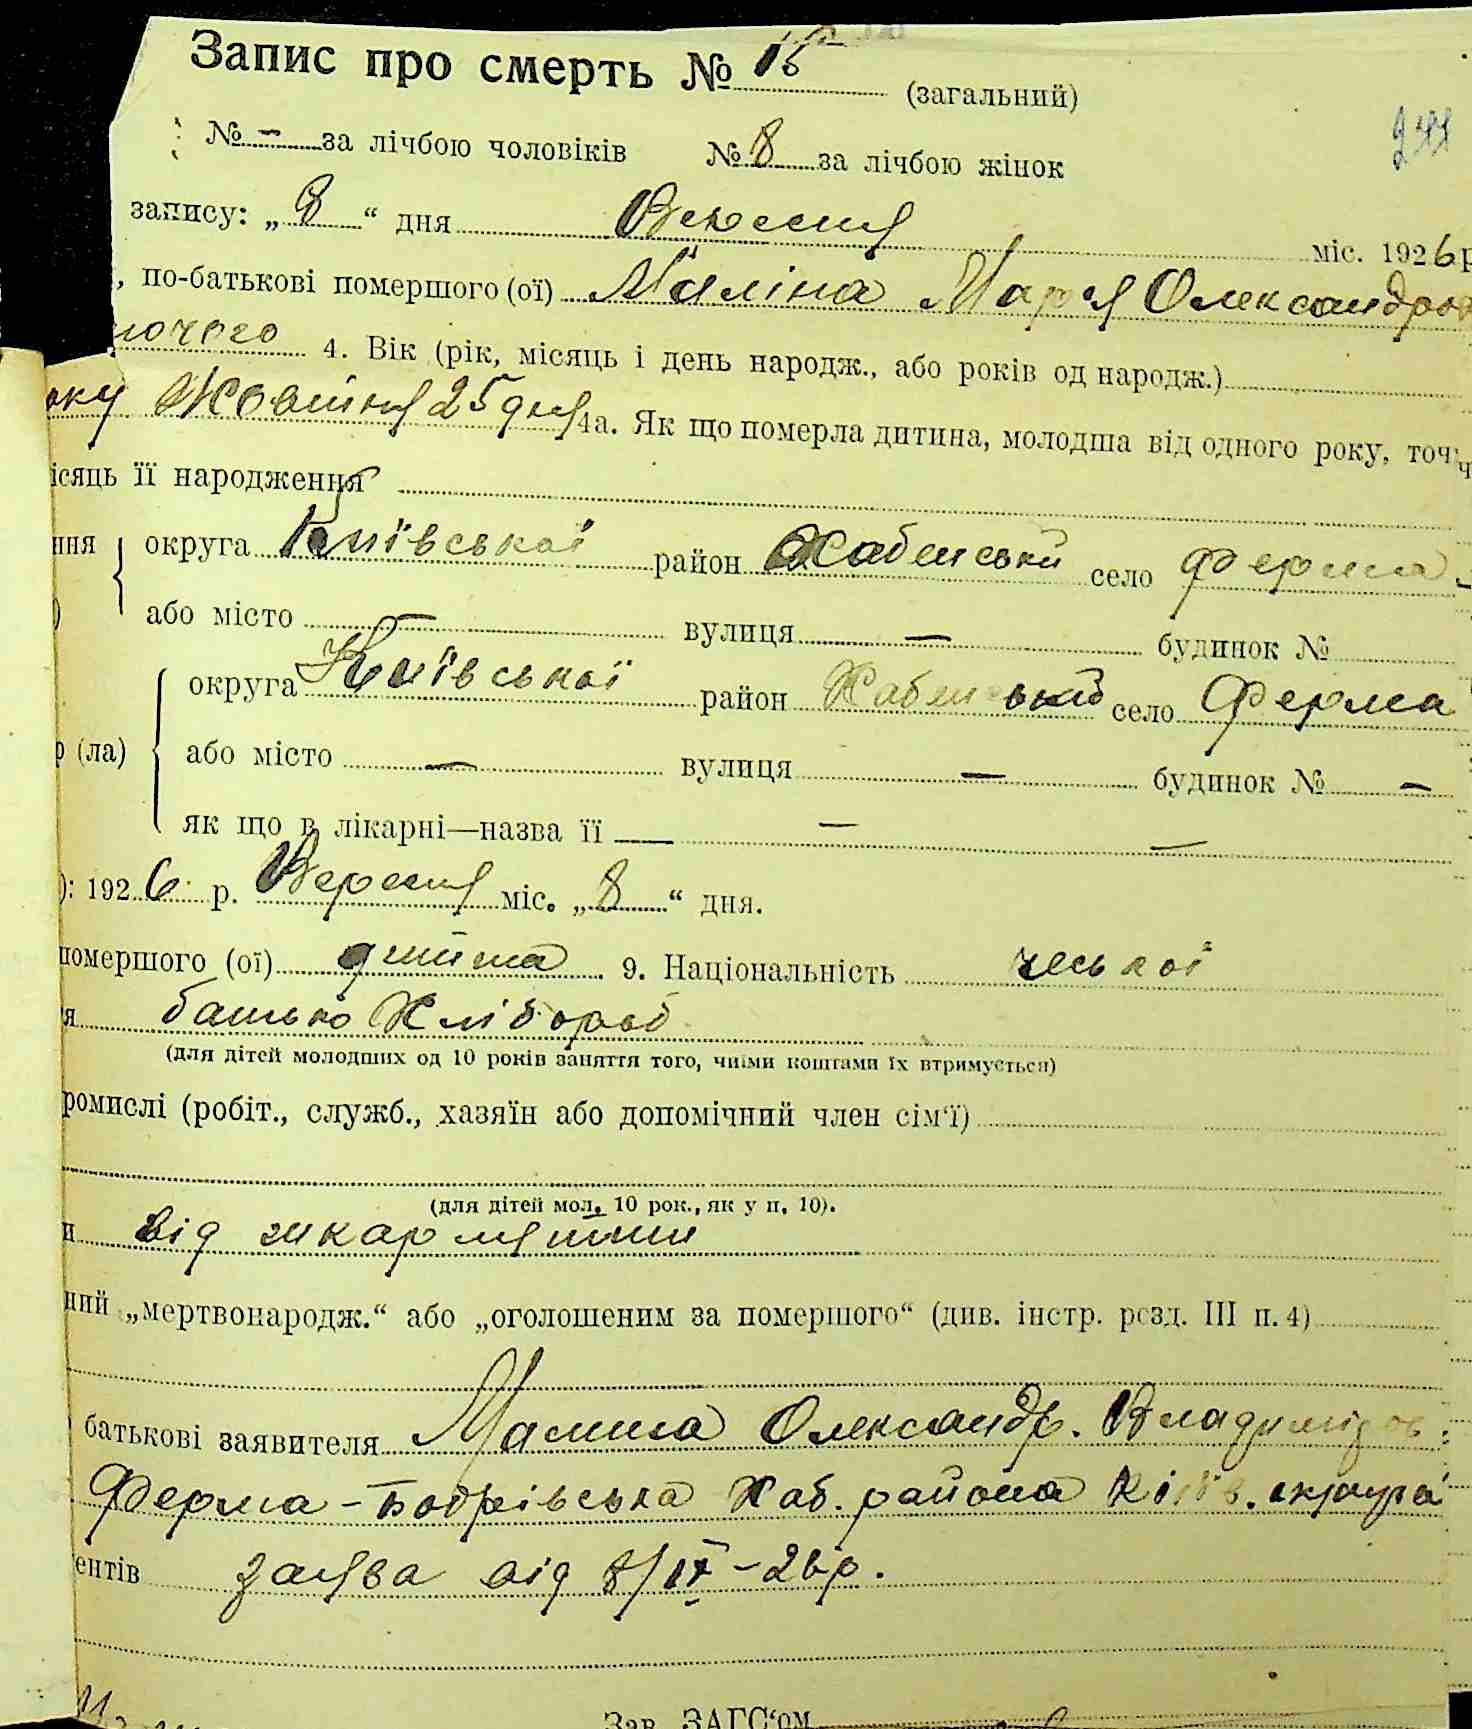 Запис про смерть № 15 (загальний)
№ — за лічбою чоловіків № 8 за лічбою жінок
запису: „ 8 “ дня Вересня міс. 1926 р
, по-батькові помершого (ої) Маліна Марія Олександров
ночого 4. Вік (рік, місяць і день народж., або років од народж.)
оку Жовтня 25 дня 4а. Як що померла дитина, молодша від одного року, точ
ісяць її народження
ння округа Київської район Хабенський село Ферма
) або місто — вулиця — будинок №
округа Київської район Хабенський село Ферма
р (ла) або місто — вулиця — будинок № —
як що в лікарні—назва її — — —
): 1926 р. Вересня міс. „ 8 “ дня.
помершого (ої) дитина 9. Національність чеської
я батько Хлібороб
(для дітей молодших од 10 років заняття того, чиїми коштами їх втримується)
ромислі (робіт., служб., хазяїн або допомічний член сім‘ї)
(для дітей мол. 10 рок., як у п. 10).
и від шкарлятини
ний „мертвонародж.“ або „оголошеним за помершого“ (див. інстр. розд. III п. 4)
батькові заявителя Малина Олександр. Владиміров.
Ферма - Хаб. района Київ. округи
ентів заява від 8/IX - 26 р.
Зав. ЗАГС‘ом